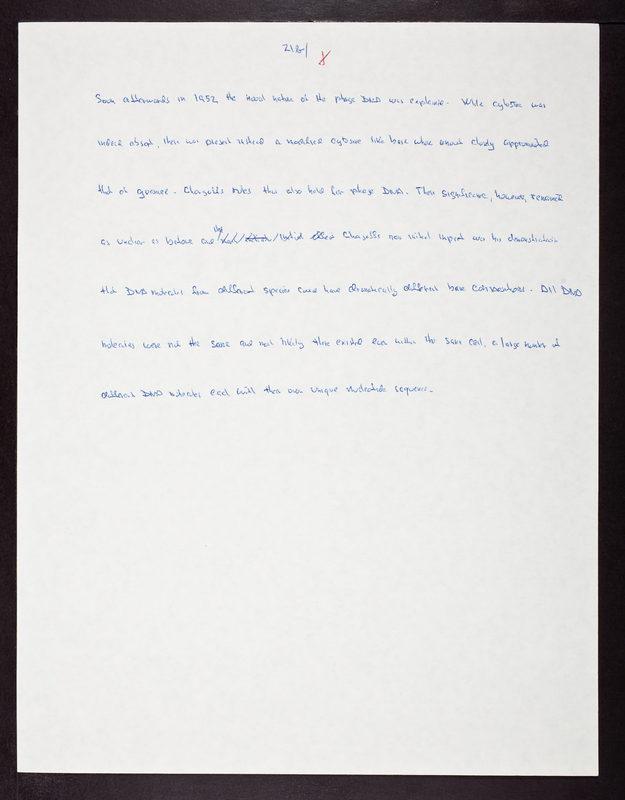 21B/
Soon afterwards in 1952, the novel nature of the phage DNA was explained. While cytosine was
indeed absent, there was present instead a modified cytosine like base whose amount closely approximated
that of guanine. Chargaff's rules thus also held for phage DNA. Their significance, however, remained
as unclear as before and the initial Chargaff's main initial impact was his demonstration
that DNA molecules from different species could have dramatically different base compositions. All DNA
molecules were not the same and most likely there existed even within the same cell, a large number of
different DNA molecules each with their own unique nucleotide sequence.